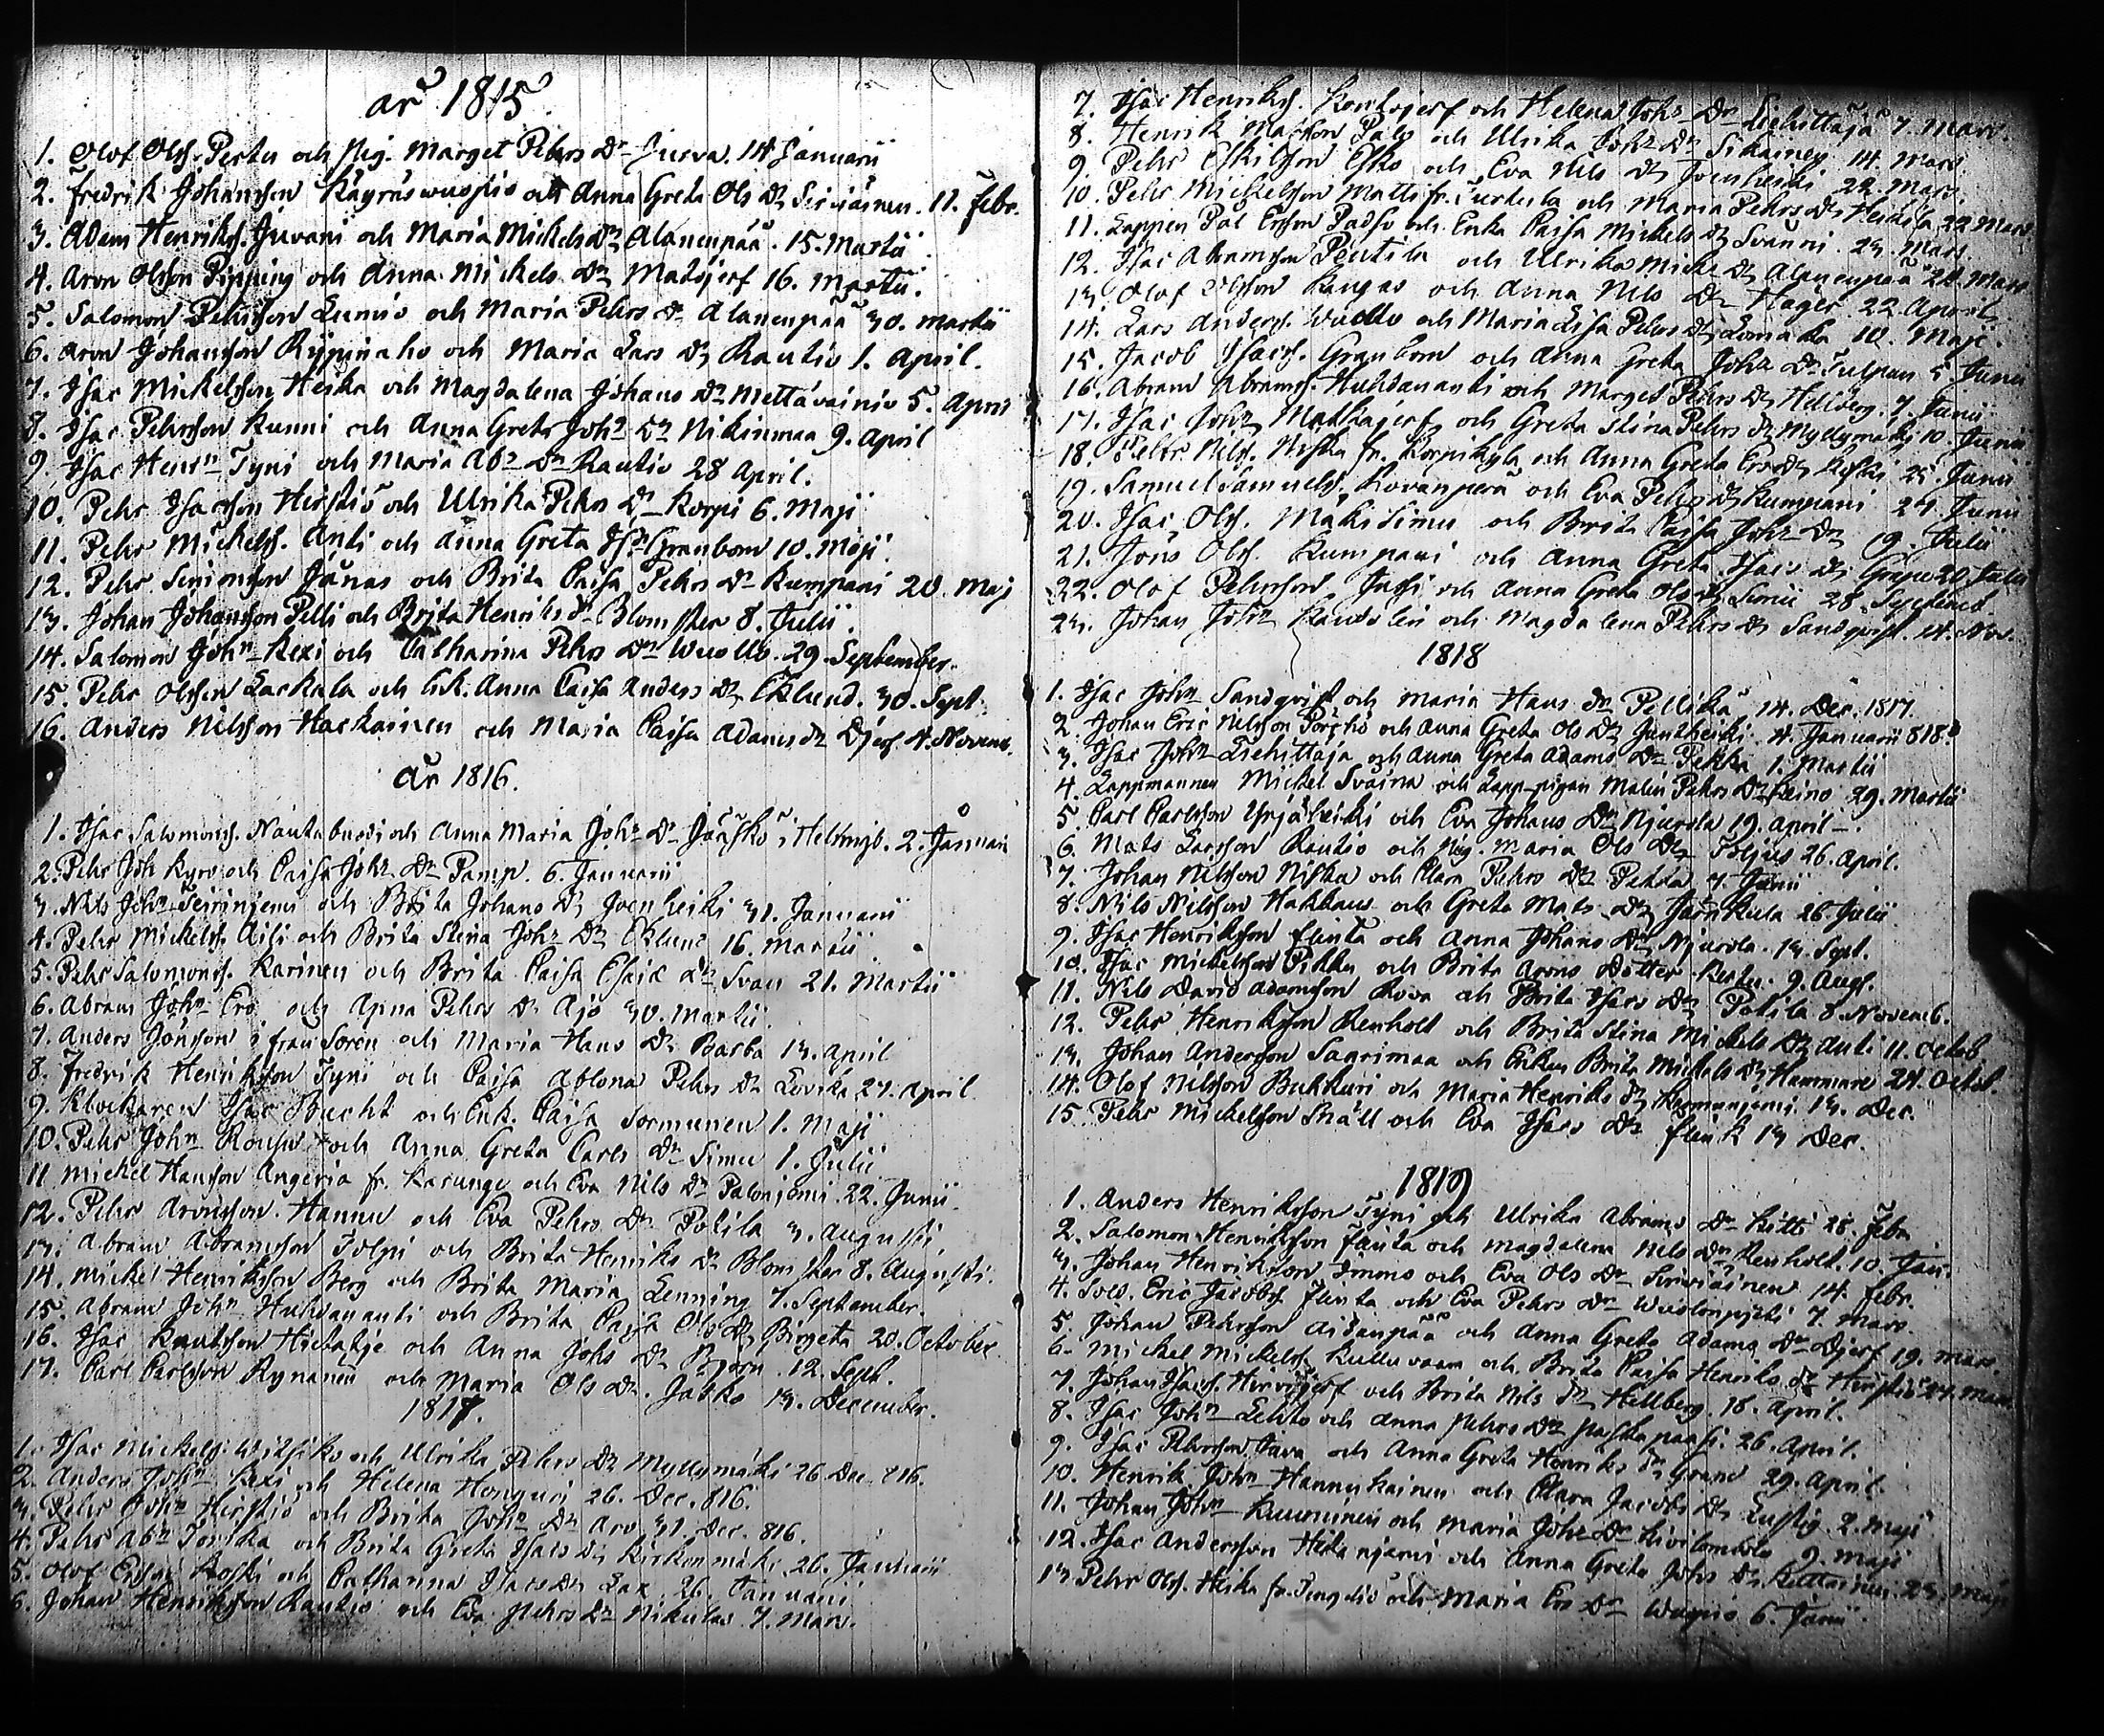 år 1815
1. Olof Olss. Pertu och Pig. Marget Pehrs Dr Jurva. 14 Januarii
2. Fredrik Johansson Käyräswuopio och Anna Greta Ols Dr Sirviäinen. 11. Febr.
3. Adam Henrikss. Juvani och Maria Mickels Dr Alanenpää. 15. Martii
4. Aron Olsson Pipping och Anna Mickels Dr Matojerf 16. Martii.
5. Salomon Pehrsson Lunio och Maria Pehrs Dr Alanenpää 30. Martii
6. Aron Johansson Rypinaho och Maria Lars Dr Rautio 1. April.
7. Isac Mickelsson Heika och Magdalena Johans Dr Mettävainio 5. April
8. Isac Pehrsson Kunni och Anna Greta Johs Dr Nikinmaa 9. April
9. Isac Henrn Tyni och Maria Abr Dr Rautio 28 April.
10. Pehr Isacsson Hirstiö och Ulrika Pehrs Dr Korpi 6. Maji
11. Pehr Mickelss. Anti och Anna Greta Isr Granbom 10. Maji.
12. Pehr Simonsson Jänas och Brita Caisa Pehrs Dr Kumpani 20. Maj
13. Johan Johansson Pelli och Brita Henriks Dr Blomster 8. Julii.
14. Salomon John Kexi och Catharina Pehrs Dr Wuollo. 29. September.
15. Pehr Olsson Laekula och Enk. Anna Caisa Anders Dr Eklund. 30. Sept.
16. Anders Nilsson Harkainen och Maria Caisa Adams Dr Djerf 4. Novemb.
år 1816.
1. Isac Salomonss. Nautabuodi och Anna Maria Johs Dr Jääskö i Hellmyb. 2. Januarii
2. Pehr Joh Kyrö och Caisa Johs Dr Pamp. 6. Januarii
3. Nils John Teirinjemi och Brita Johans Dr Joenheiki 31. Januarii
4. Pehr Mickelss. Aili och Brita Stina Johs Dr Eklund 16. Martii
5. Pehr Salomonss. Karinen och Brita Caisa Esaix Dr Svan 21. Martii
6. Abram John Ero och Anna Pehrs Dr Ajo 30. Martii.
7. Anders Jönsson ifrån Soren och Maria Hans Dr Barba 13. April
8. Fredrik Henriksson Tyni och Caisa Ablona Pehrs Dr Lovika 27. April
9. Klockaren Isac Bucht och Enk. Caisa Sormunen 1. Maji
10. Pehr John Rousu och Anna Greta Carls Dr Simu 1. Julii
11 Mickel Hansson Angeria fr. Karungi och Eva Nils Dr Palonjemi. 22. Junii.
12. Pehr Aronsson Hannu och Eva Pehrs Dr Poikila 3. Augusti
13. Abram Abramsson Tolpi och Brita Henriks Dr Blomster 8. Augusti.
14. Mickel Henriksson Berg och Brita Maria Lenning 7. September.
15. Abram John Huhdananti och Brita Caisa Ols Dr Birgeta 20. October
16. Isac Knutsson Hietatje och Anna Johs Dr Björn. 12. Sept.
17. Carl Carlsson Rynänen och Maria Ols Dr. Jatko 13. December.
1817.
1. Isac Mickelss. och Ulrika Pehrs Dr Myllymäki 26. Dec. 816.
2. Anders John Kexi och Helena Honguri 26. Dec. 816.
3. Pehr John Hirstiö och Brita Johs Dr Aro 31. Dec. 816.
4. Pehr Abr Tornka och Brita Greta Isacs Dr Kirkonmäki. 26. Januarii
5. Olof Ersson Koski och Catharina Isacs Dr Lax. 26. Januarii
6. Johan Henriksson Rautio och Eva Pehrs Dr Nikulas 7. Mars.
7. Isac Henrikss. Kontojerf och Helena Johs Dr Liehittäjä 7. Mars.
8. Henrik Matsson Palo och Ulrika Johs Dr 14. Mars
9. Pehr Eskilsson Esko och Eva Nils Dr Joenheiki 22. Mars.
10. Pehr Mickelsson Matti fr. Turtula och Maria Pehrs Dr Heikila 22 Mars
11. Lappen Pål Ersson Padso och Enka Caisa Mickels Dr Svanni. 23. Mars
12. Isac Abramsson Pentila och Ulrika Mick Dr Alanenpää 24. Mars
13. Olof Olsson Kangas och Anna Nils Dr Hager 22 April
14. Lars Anderss. Wuollo och Maria Lisa Pehrs Dr Lomaka 10. Maji.
15. Jacob Isacs. Granbom och Anna Greta Johs Dr Tulpan 5 Junii
16. Abram Abramss. Huhdananti och Marget Pehrs Dr Hellberg. 7. Junii
17. Isac Johs Matkajerf och Greta Stina Pehrs Dr Myllymäki 10. Junii
18. Pehr Nilss. Niska fr. Korpikylä och Anna Greta Ers Dr Koski 25. Junii
19. Samuel Samuelss. Kovanperä och Eva Pehrs Dr Kumpani 24. Junii
20. Isac Olss. Mäkisimu och Brita Caisa Johs Dr 19. Julii
21. Jöns Olss. Kumpani och Anna Greta Isacs Dr Grape 20 Julii
22. Olof Pehrsson Jussi och Anna Greta Ols Dr Simu 28. Septemb.
23. Johan Johs Kandolin och Magdalena Pehrs Dr Sandqvist. 14. Nov.
1818
1. Isac John Sandqvist och Maria Hans Dr Pellikä 14. Dec. 1817.
2. Johan Eric Nilsson Pörhö och Anna Greta Ols Dr Junkheiki. 4. Januarii 818.
3. Isac Johs Liehittäja och Anna Greta Adams Dr Pekka 1. Martii
4. Lappmannen Mickel Svåina och Lapp-pigan Malin Pehrs Dr Keino 29. Martii
5. Carl Carlsson Yrjäheiki och Eva Johans Dr Njurola 19. April.
6. Mats Larsson Rautio och Pig. Maria Ols Dr Toljus 26. April.
7. Johan Nilsson Niska och Clara Pehrs Dr Pekka 7. Junii
8. Nils Nilsson Hakkaus och Greta Mats Dr Jarnkula 26 Julii
9. Isac Henriksson Flinta och Anna Johans Dr Njurola. 13. Sept.
10. Isac Mickelsson Pikku och Brita Arons Dotter Kerttu. 9. Aug.
11. Nils David Adamsson Rova och Brita Isacs Dr Poikila 8. Novemb.
12. Pehr Henriksson Renholt och Brita Stina Mickels Dr Anti 11. Octob
13. Johan Andersson Saarimaa och Enkan Brita Mickels Dr Hammare 24. Octob.
14. Olof Nilsson Bukkuri och Maria Henriks Dr 13. Dec.
15. Pehr Mickelsson Snäll och Eva Isacs Dr Flink 13 Dec.
1819
1. Anders Henriksson Tyni och Ulrika Abrams Dr Kitti 28. Febr
2. Salomon Henriksson Flinta och Magdalena Nils Dr Renholt. 10. Jan.
3. Johan Henriksson Immo och Eva Ols Dr Sirviäinen 14. Febr.
4. Sold. Eric Jacobss. Flinta och Eva Pehrs Dr 7. Mars.
5. Johan Pehrsson Aidanpää och Anna Greta Adams Dr Djerf 19. Mars
6. Mickel Mickelss. Kulluvaara och Brita Caisa Henriks Dr Hirstiö 24. Mars
7. Johan Isacss. Hirvijerf och Brita Nils Dr Hellberg. 18. April.
8. Isac John Lehto och Anna Pehrs Dr Paskapaasi. 26. April.
9. Isac Pehrsson Juva och Anna Greta Henriks Dr Grand 29. April.
10. Henrik Johs Hannukainen och Clara Jacobs Dr Lustig. 2. Maji
11. Johan Johs Kumminen och Maria Johs Dr Kivilombolo 9. Maji
12. Isac Andersson Hetanjarvi och Anna Greta Johs Dr Kuttainen. 23. Maji
13. Pehr Olss. Heika fr. Jungdiö och Maria Ers Dr Wuopio 6. Junii.